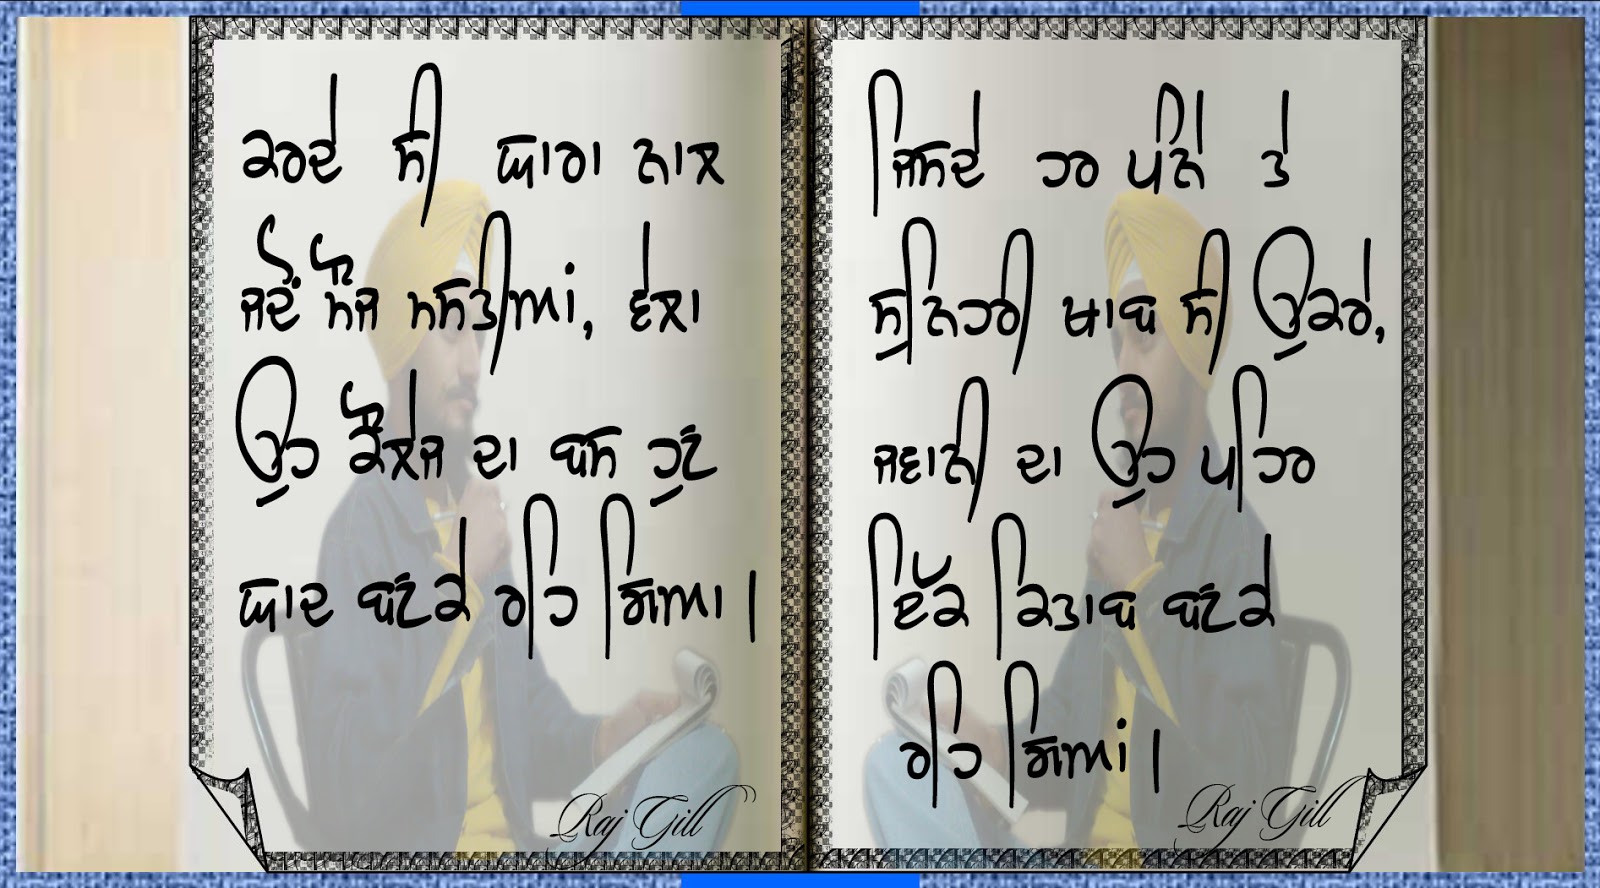 ਕਰਦੇ ਸੀ ਯਾਰਾ ਨਾਲ
ਜਦੋਂ ਮੌਜ ਮਸਤੀਆਂ, ਵੇਲਾ
ਉਹ ਕੌਲੇਜ ਦਾ ਬਸ ਹੁਣ
ਯਾਦ ਬਣਕੇ ਰਹਿ ਗਿਆ।
Raj Gill
ਜਿਸਦੇ ਹਰ ਪੰਨੇ ਤੇ
ਸੁਨਿਹਰੀ ਖਾਬ ਸੀ ਉਕਰੇ,
ਜਵਾਨੀ ਦਾ ਉਹ ਪਹਿਰ
ਇੱਕ ਕਿਤਾਬ ਬਣਕੇ
ਰਹਿ ਗਿਆਂ।
Raj Gill